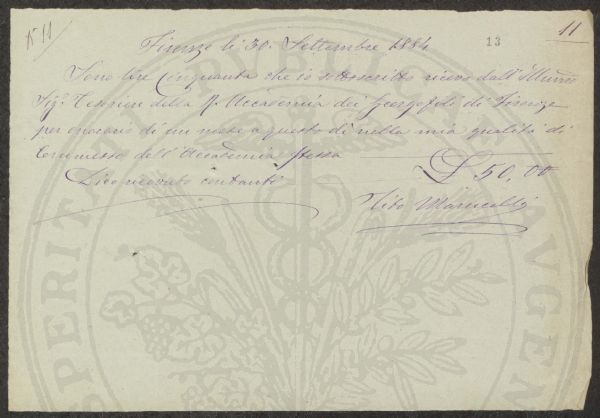 N° 11
11
13
Firenze li 30. Settembre 1884
Sono lire Cinquanta che io sottoscritto ricevo dall' Illmo
Sig: Tesoriere della R. Accademia dei Georgofili di Firenze
per onorario di un mese a questo dì nella mia qualità di
Commesso dell' Accademia stessa £ 50,00
Dico ricevuto contanti
Tito
PROSPERITATI PUBLICAE AUGENDAE